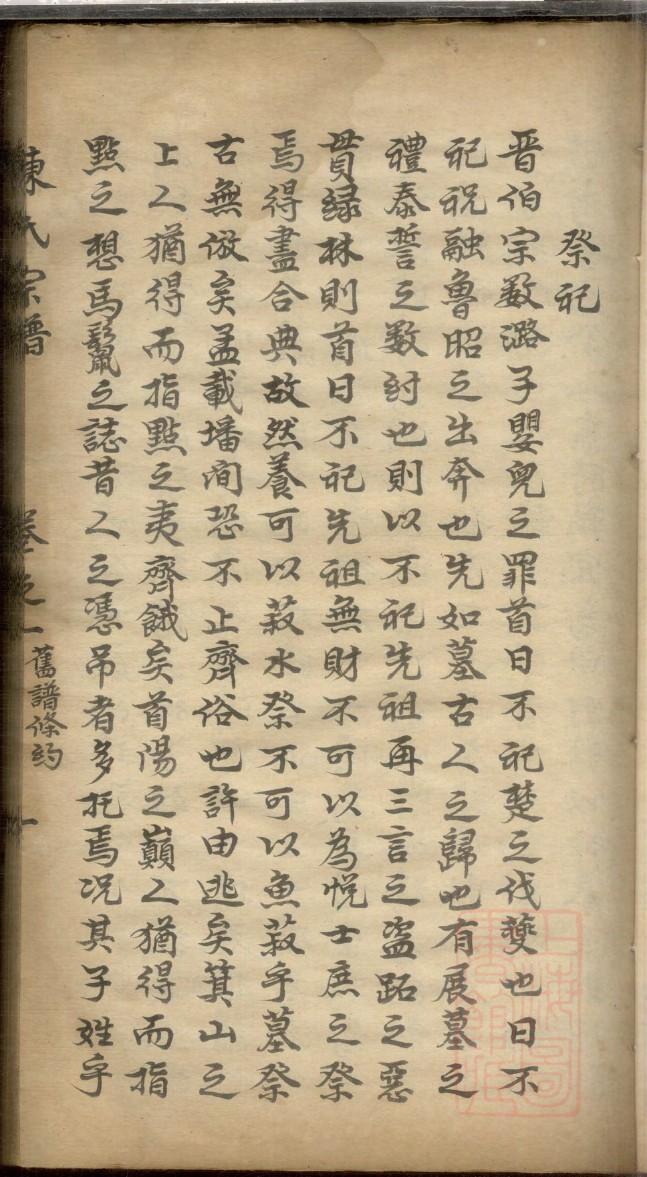 祭祀
晋伯宗数潞子嬰兒之罪首日不祀楚之伐夔也日不
祀祝融魯昭之出奔也先如墓古人之歸也有展墓之
禮泰誓之数紂也則以不祀先祖再三言之盜跖之惡
貫緑林則首日不祀先祖無財不可以為悅士庶之祭
焉得盡合典故然養可以菽水祭不可以魚菽乎墓祭
古無倣矣孟載墦間恐不止齊俗也許由逃矣箕山之
上人猶得而指點之夷齊餓矣首陽之巔人猶得而指
點之想馬鬣之誌昔人之憑吊者多托焉况其子姓乎
陳氏宗譜 卷之一 舊譜條約 一